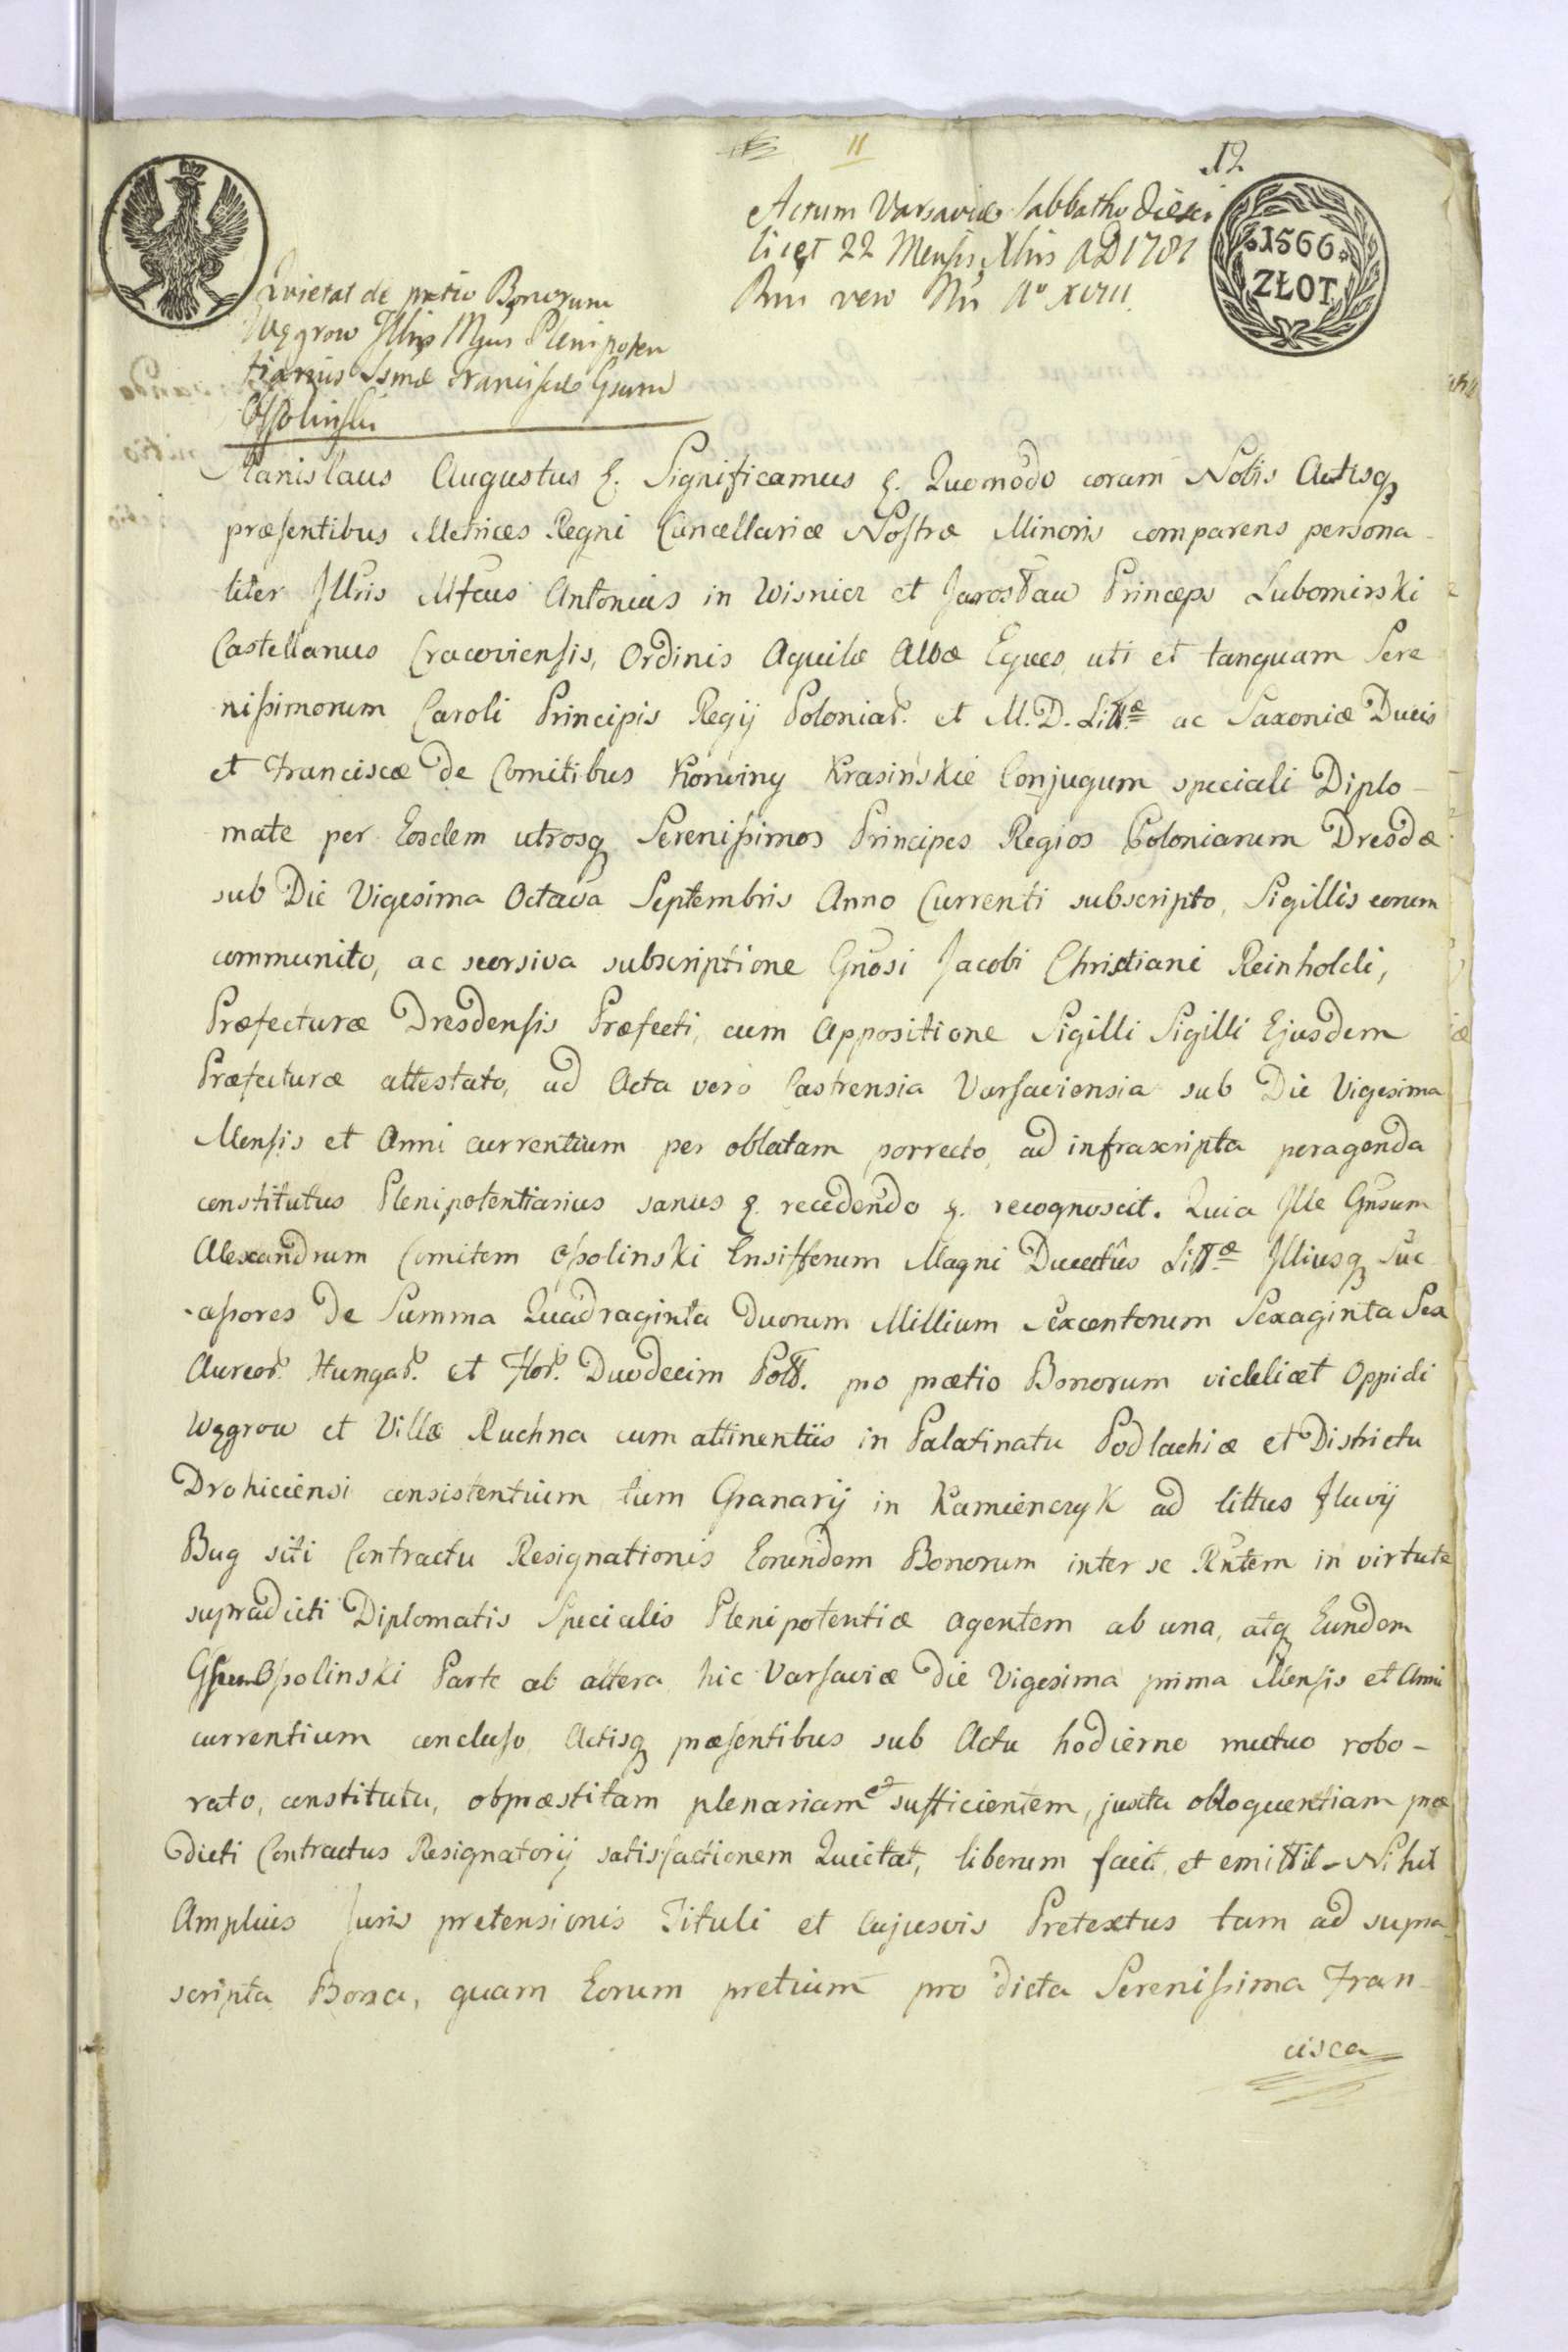 11
12
Actum Varsaviæ Sabbatho die sci
licet 22 Mensis Xbris AD 1781
Rni vero Nri Aº XVIII.
1566
ZŁOT
Quietat de pretio Bonorum
Węgrow Illris Mgcus Plenipoten
tiarius Ssmæ Franciscæ Gsum
Ossolinski
Stanislaus Augustus &. Significamus &. Quomodo coram Nobis Actisq
præsentibus Metrices Regni Cancellariæ Nostræ Minoris comparens persona-
liter Illris Mfcus Antonius in Wisnicz et Jarosław Princeps Lubomirski
Castellanus Cracoviensis, Ordinis Aquilæ Albæ Eques, uti et tanquam Sere
nissimorum Caroli Principis Regij Poloniar. et M.D. Littæ ac Saxoniæ Ducis
et Franciscæ de Comitibus Korwiny Krasińskie Conjugum speciali Diplo-
mate per Eosdem utrosq Serenissimos Principes Regios Poloniarum Dresdæ
sub Die Vigesima Octava Septembris Anno Currenti subscripto, Sigillis eorum
communito, ac seorsiva subscriptione Gnosi Jacobi Christiani Reinholdi,
Præfecturæ Dresdensis Præfecti, cum Appositione Sigilli Sigilli Ejusdem
Præfecturæ attestato, ad Acta vero Castrensia Varsaviensia sub Die Vigesima
Mensis et Anni currentium per oblatam porrecto, ad infrascripta peragenda
constitutus Plenipotentiarius sanus &. recedendo &. recognoscit. Quia Ille Gnsum
Alexandrum Comitem Ossolinski Ensifferum Magni Ducatûs Littæ Illiusq Suc
-cessores de Summa Quadraginta Duorum Millium Sexcentorum Sexaginta Sex
Aureor. Hungar. et Flor. Duodecim Poll. pro prætio Bonorum videlicet Oppidi
Węgrow et Villæ Ruchna cum attinentiis in Palatinatu Podlachiæ et Districtu
Drohiciensi consistentium tum Granarij in Kamienczyk ad littus Fluvij
Bug siti Contractu Resignationis Eorundem Bonorum inter se Rntem in virtute
supradicti Diplomatis Specialis Plenipotentiæ agentem ab una, atq Eundem
Gsum Ossolinski Parte ab altera, hic Varsaviæ die Vigesima prima Mensis et Anni
currentium concluso, Actisq præsentibus sub Actu hodierno mutuo robo-
rato, constituta, obpræstitam plenariam et sufficientem, juxta obloquentiam præ
dicti Contractus Resignatorij satisfactionem Quietat, liberum facit, et emittit - Nihil
Amplius Juris pretensionis Tituli et Cujusvis Pretextus tam ad supra
scripta Bona, quam Eorum pretium pro dicta Serenissima Fran-
cisca